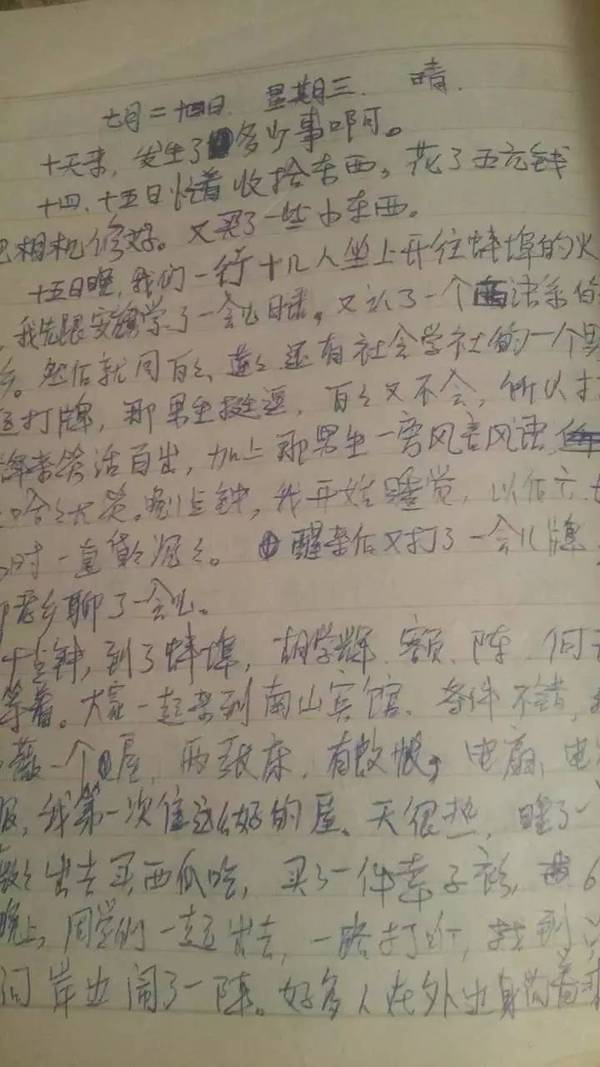 七月二十四日 星期三 晴.
十天来,发生了多少事啊。
十四、十五日忙着收拾东西。花了五元钱
相机修好。又买了一些小东西。
十五日晚,我们一行十几人坐上开往蚌埠的火
我先跟 学了一会儿日语。又认了一个 语系的
乡。然后就同百々、 还有社会学社的一个男
打牌,那男生挺逗,百々又不会,所以打
笑话百出,加上那男生一旁风言风语
哈々大笑。 点钟,我开始睡觉,以后六七
小时一直 。醒来后又打了一会儿牌
老乡聊了一会儿。
十点钟,到了蚌埠, 陈 何
等着。大家一起来到南山宾馆、条件不错,
薇一个屋,两张床,有蚊帐,电扇,电
我第一次住这么好的屋、天很热,睡了一
出去买西瓜吃,买了一件 子衫, 6
晚上,同学们一起出去,一路打听,找到
河岸边闹了一阵。好多人在外边